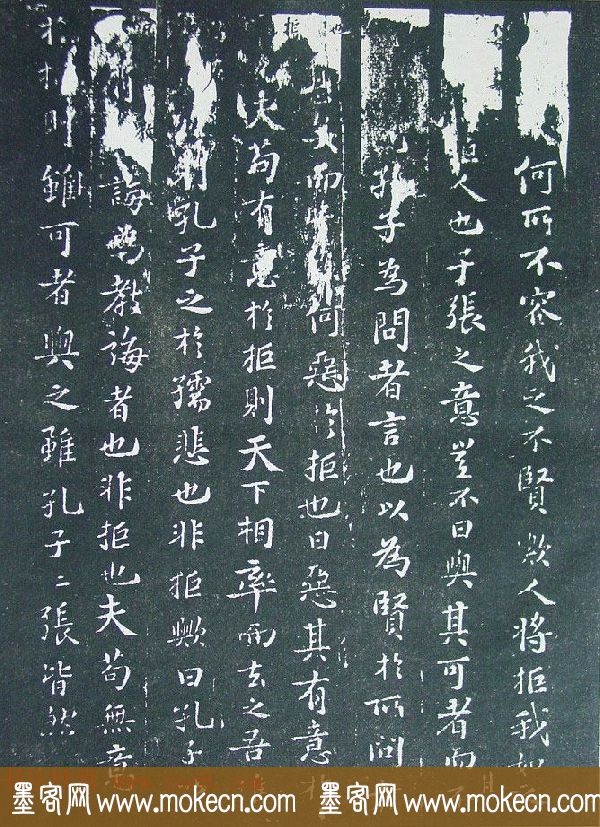 何所不容我之不賢歟人將拒我如
拒人也子張之意豈不曰與其可者而不
孔子為問者言也以為賢於所問
而 何惡於拒也曰惡其有意於
夫苟有意於拒則天下相率而去之吾
孔子之於孺悲也非拒歟曰孔子
誨為教誨者也非拒也夫苟無意
於拒則雖可者與之雖孔子子張皆然
墨客网 www.mokecn.com 墨客网 www.mokecn.com